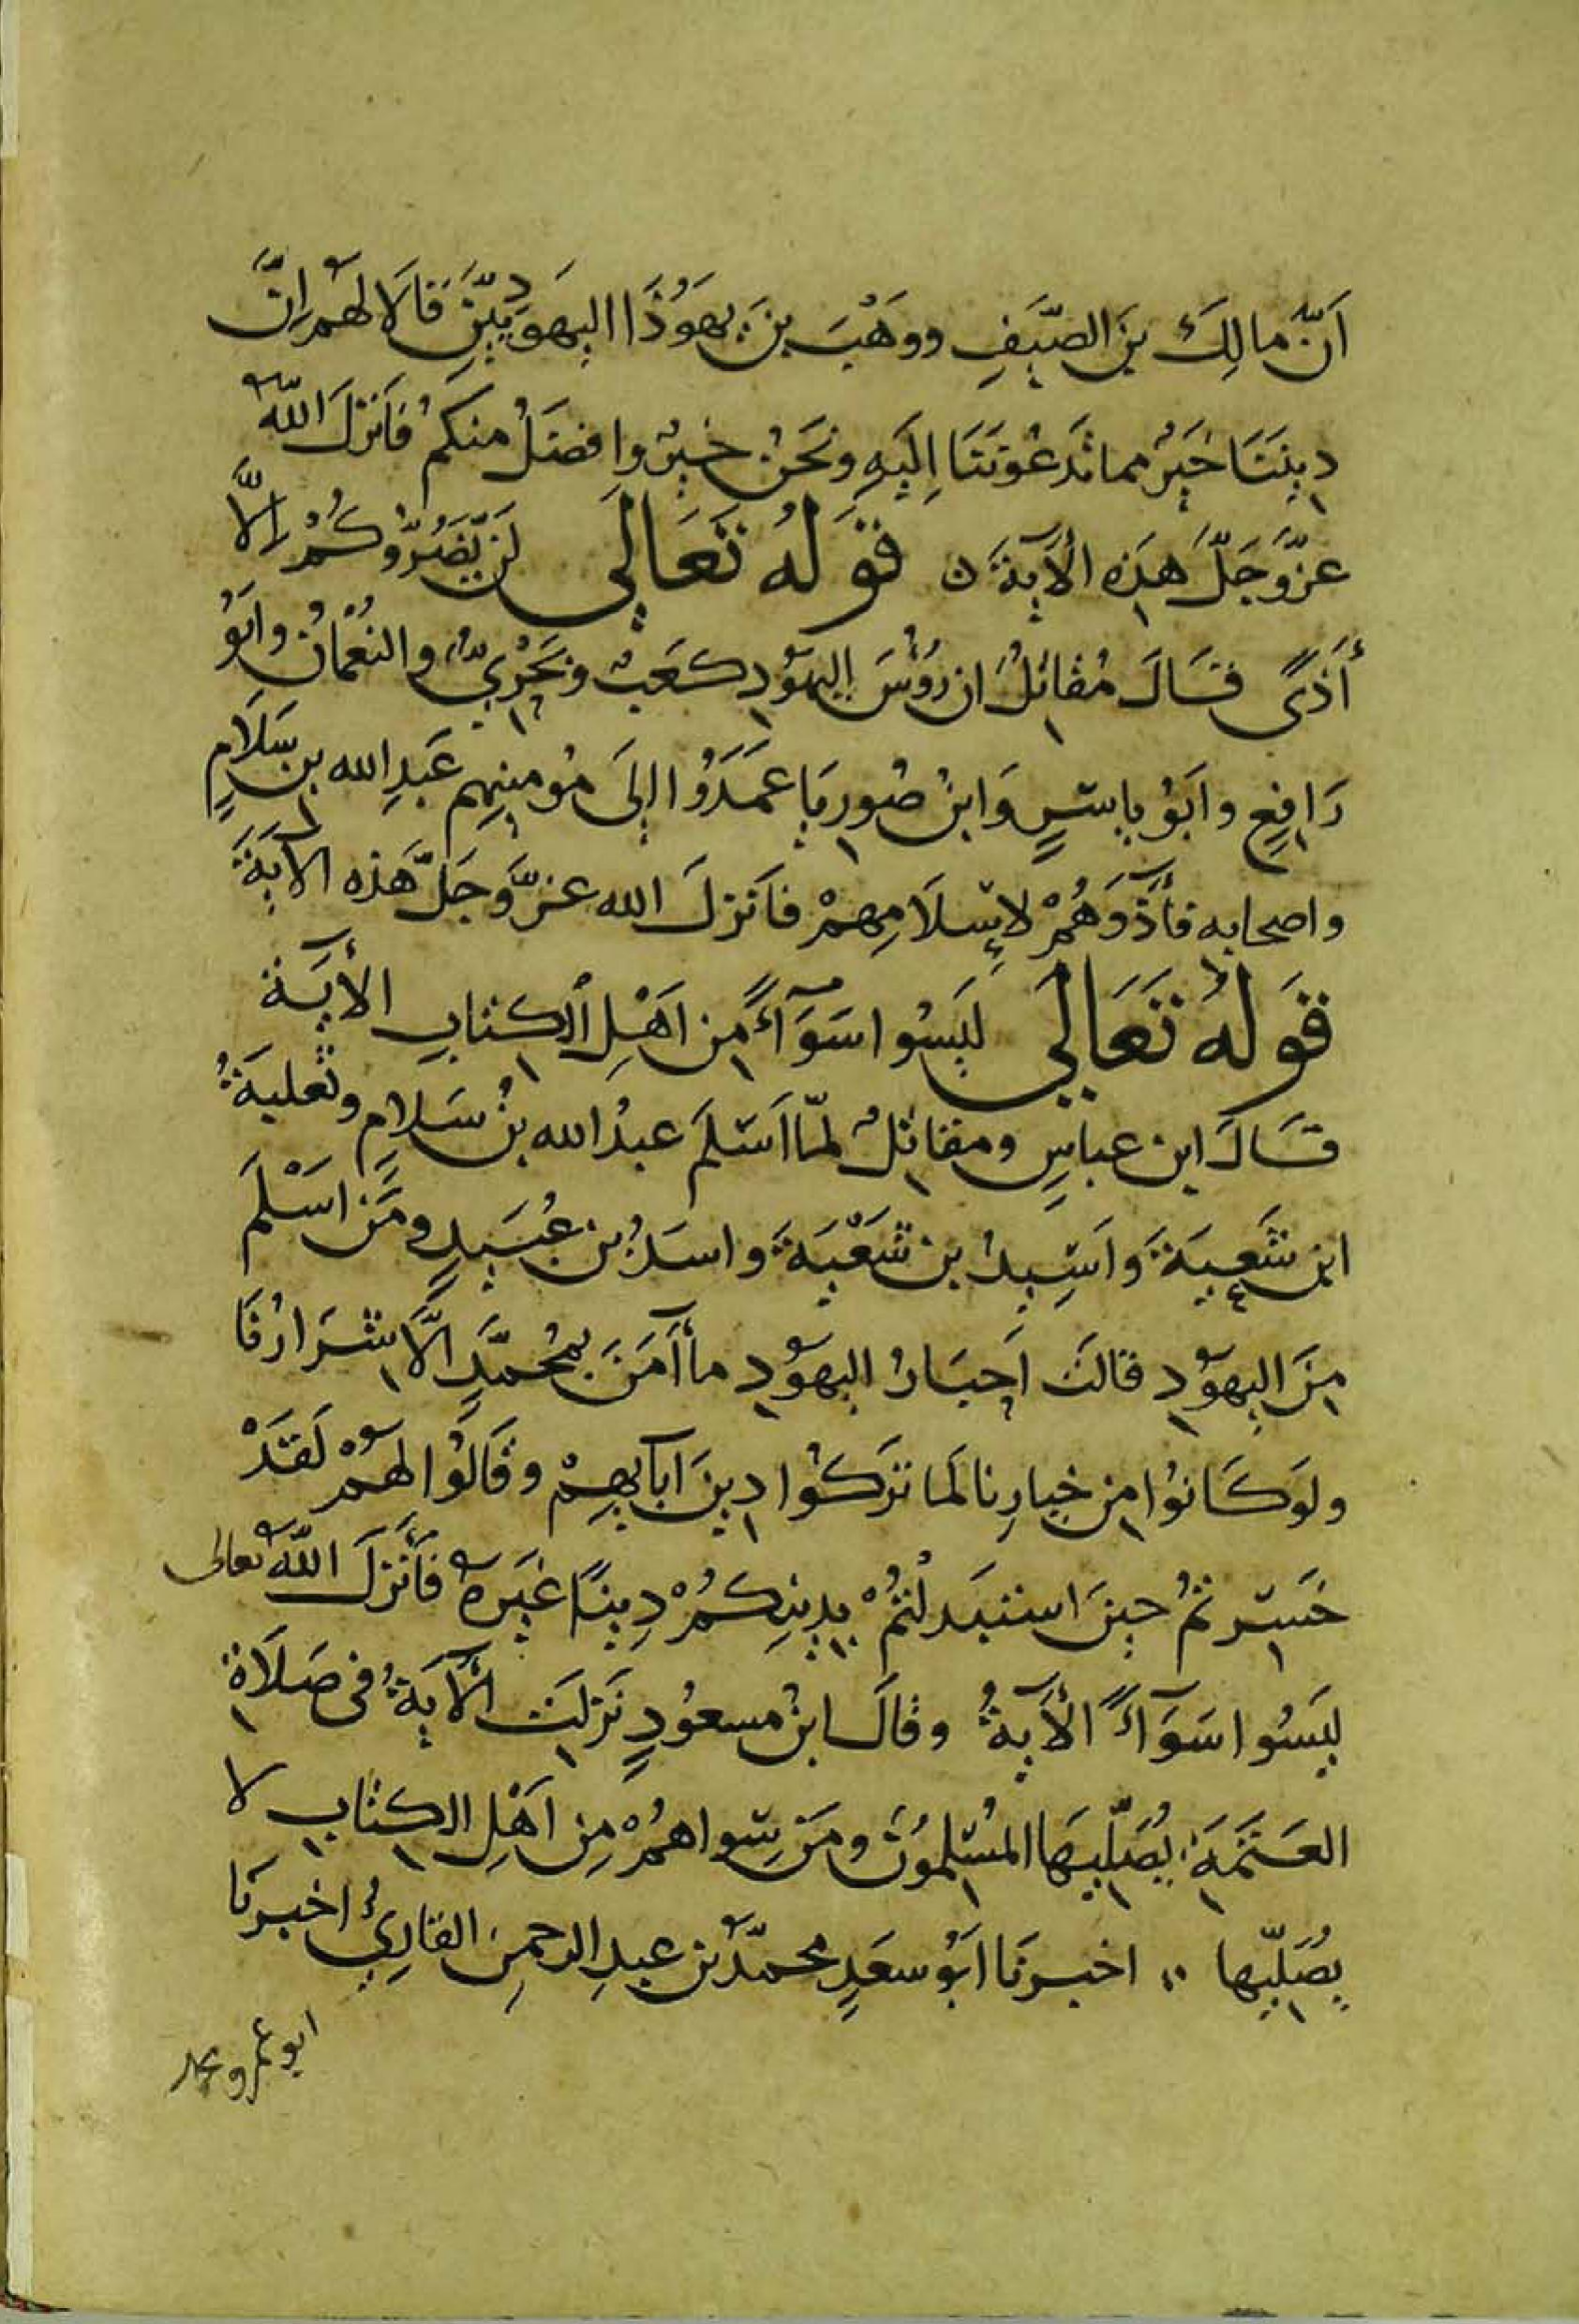 اَنّ مالِكَ بنَ الصّيَفِ ووهْبَ بنَ يهَوُذَا اليهَودِيَّيْنِ قَالَا لهُمْ اِنَّ
دِينَنَا خَيْرٌ مما تَدعُونَنَا اِلَيهِ ونَحْنُ خيرٌ وافضَلُ منكمُ فأَنزلَ اللّٰهُ
عزّوَجَلَّ هَذِهِ الْآيةَ ن قَولُهُ تَعَالَى لَن يَّضُرُّوكُمْ اِلَّا
أَذًى قَالَ مُقاتِلٌ ان رُؤُسَ اليهُودِ كعَبٌ وبَحْرِيٌّ والنُعْمَانُ وابَوُ
رَافِعٍ وابَوُ ياسَرٍ وَابنُ صُورِيَا عمَدَوُا اِلىَ مُومِنِهِم عَبدِ الله بن سَلَامٍ
واصحابِه فأَذَوهُمْ لاِسْلَامِهِمْ فأَنزلَ الله عزّوَجَلَّ هَذِه الآيَةَ
قَولُهُ تَعَالَى ليَسُوا سَوَآءً مِن اَهْلِ الكتابِ الْأيَة
قَالَ ابن عباسٍ ومقاتلٌ لمّا اَسْلَمَ عبدُ الله بنُ سَلَامٍ وثَعلبَةُ
ابن شَعبَةَ وَاَسِيدُ بن شَعْبَةَ واسَدُ بن عُبَيدٍ ومَن اسْلَمَ
مِنَ اليهُودِ قالت اَحبَارُ اليهُودِ ما آمَنَ بمُحَمَّدٍ اِلَّا شرَارُنَا
ولَوكَانوُا مِن خيارِنا لَما تَرَكوُا دِينَ ابآئِهِمْ وقَالوُا لهُمْ لَقَدْ
خَسِرتمُ حِينَ استبَدلْتُمْ بِدِينِكمُ دِينًا غيَرهُ فأَنزلَ اللّٰهُ تعالى
ليَسُوا سَوَآءً الْآيةُ وقالَ ابنُ مسعُودٍ نَزلَت الْآيةُ في صَلَاةِ
العَتَمَةِ يُصَلّيِهَا المُسْلِموُنَ ومَن سِواهمُ مِن اَهْلِ الكتابِ لا
يُصَلّيِها ؞ اخبرَنا ابَوُ سعَدٍ محمّدُ بن عبدِ الرحمنِ القارِيُ اخبرنَا
ابو عمرو محمد